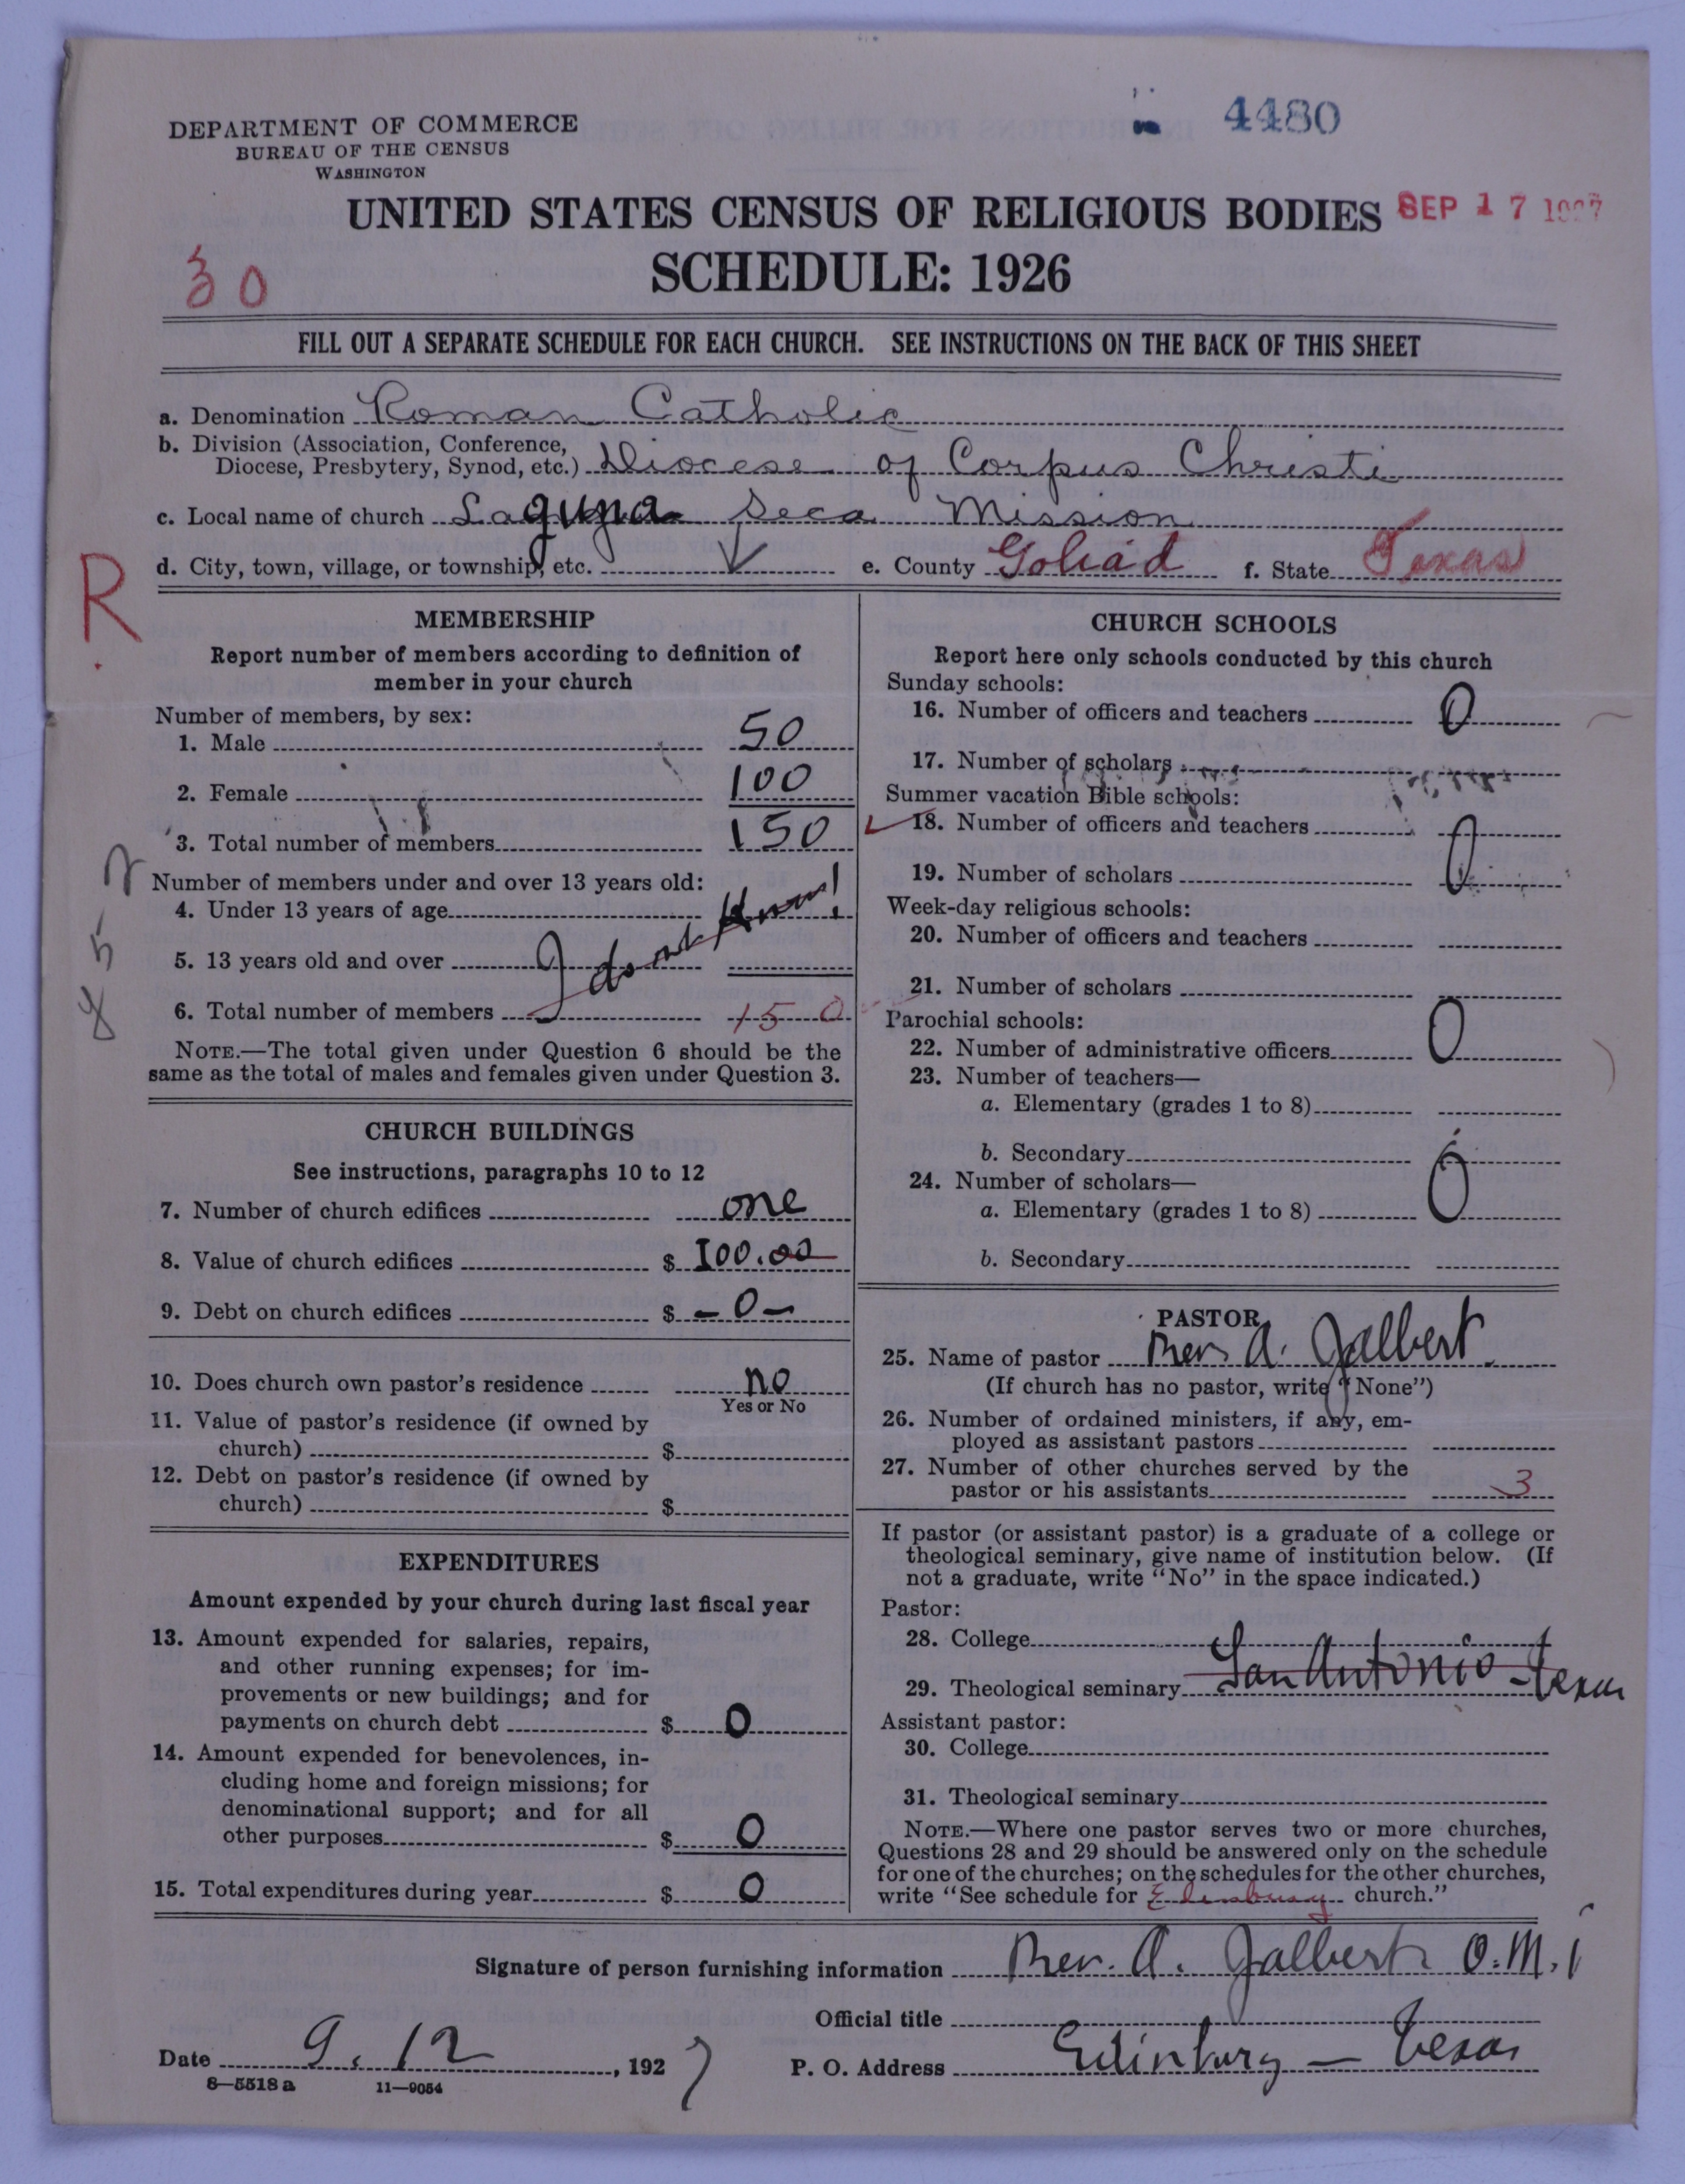 4480
DEPARTMENT OF COMMERCE
BUREAU OF THE CENSUS
WASHINGTON
UNITED STATES CENSUS OF RELIGIOUS BODIES
SEP 17 1927
SCHEDULE: 1926
30
FILL OUT A SEPARATE SCHEDULE FOR EACH CHURCH. SEE INSTRUCTIONS ON THE BACK OF THIS SHEET
a. Denomination Roman Catholic
b. Division (Association, Conference,
Diocese, Presbytery, Synod, etc.) Diocese of Corpus Christi
c. Local name of church Laguna Seca Mission
d. City, town, village, or township, etc. e. County Goliad f. State Texas
R
MEMBERSHIP
Report number of members according to definition of
member in your church
Number of members, by sex:
1. Male 50
2. Female 100
3. Total number of members 150
Number of members under and over 13 years old:
4. Under 13 years of age
5. 13 years old and over I do not know!
6. Total number of members 150
NOTE.—The total given under Question 6 should be the
same as the total of males and females given under Question 3.
CHURCH BUILDINGS
See instructions, paragraphs 10 to 12
7. Number of church edifices one
8. Value of church edifices $ 100.00
9. Debt on church edifices $ -0-
10. Does church own pastor's residence no
Yes or No
11. Value of pastor's residence (if owned by
church) $
12. Debt on pastor's residence (if owned by
church) $
EXPENDITURES
Amount expended by your church during last fiscal year
13. Amount expended for salaries, repairs,
and other running expenses; for im-
provements or new buildings; and for
payments on church debt $ 0
14. Amount expended for benevolences, in-
cluding home and foreign missions; for
denominational support; and for all
other purposes $ 0
15. Total expenditures during year $ 0
CHURCH SCHOOLS
Report here only schools conducted by this church
Sunday schools:
16. Number of officers and teachers 0
17. Number of scholars
Summer vacation Bible schools:
18. Number of officers and teachers 0
19. Number of scholars
Week-day religious schools:
20. Number of officers and teachers
21. Number of scholars
Parochial schools:
22. Number of administrative officers 0
23. Number of teachers—
a. Elementary (grades 1 to 8)
b. Secondary
24. Number of scholars— 0
a. Elementary (grades 1 to 8)
b. Secondary
PASTOR
25. Name of pastor Rev. A. Jalbert
(If church has no pastor, write "None")
26. Number of ordained ministers, if any, em-
ployed as assistant pastors
27. Number of other churches served by the
pastor or his assistants 3
If pastor (or assistant pastor) is a graduate of a college or
theological seminary, give name of institution below. (If
not a graduate, write "No" in the space indicated.)
Pastor:
28. College
29. Theological seminary San Antonio - Texas
Assistant pastor:
30. College
31. Theological seminary
NOTE.—Where one pastor serves two or more churches,
Questions 28 and 29 should be answered only on the schedule
for one of the churches; on the schedules for the other churches,
write "See schedule for church."
Signature of person furnishing information Rev. A. Jalbert O.M.I
Official title
Date 9.12, 1927 P. O. Address Edinburg — Texas
8—5518 a 11—9054